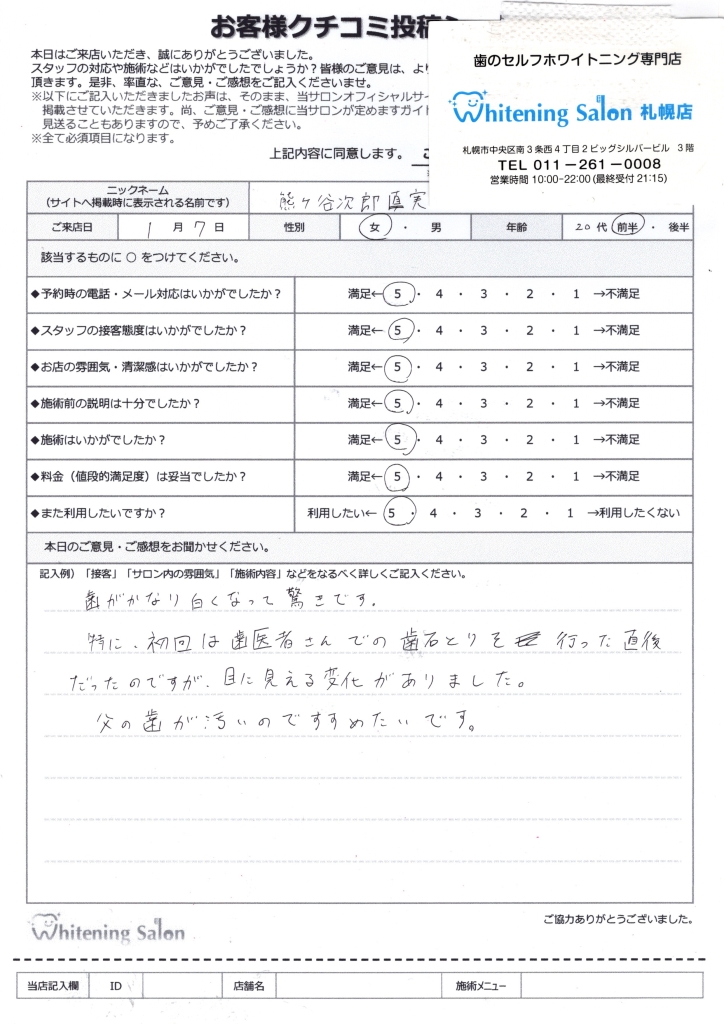 お客様クチコミ投稿
本日はご来店いただき、誠にありがとうございました。
スタッフの対応や施術などはいかがでしたでしょうか？皆様のご意見は、より
頂きます。是非、率直な、ご意見・ご感想をご記入くださいませ。
※以下にご記入いただきましたお声は、そのまま、当サロンオフィシャルサイ
掲載させていただきます。尚、ご意見・ご感想に当サロンが定めますガイド
見送ることもありますので、予めご了承ください。
※全て必須項目になります。
上記内容に同意します。
歯のセルフホワイトニング専門店
Whitening Salon 札幌店
札幌市中央区南3条西4丁目2ビッグシルバービル 3階
TEL 011－261－0008
営業時間 10:00-22:00(最終受付 21:15)
ニックネーム
（サイトへ掲載時に表示される名前です）
熊ヶ谷次郎直実
ご来店日 1月7日 性別 女 ・ 男 年齢 20代 前半 ・ 後半
該当するものに ○ をつけてください。
◆予約時の電話・メール対応はいかがでしたか？ 満足← 5 ・ 4 ・ 3 ・ 2 ・ 1 →不満足
◆スタッフの接客態度はいかがでしたか？ 満足← 5 ・ 4 ・ 3 ・ 2 ・ 1 →不満足
◆お店の雰囲気・清潔感はいかがでしたか？ 満足← 5 ・ 4 ・ 3 ・ 2 ・ 1 →不満足
◆施術前の説明は十分でしたか？ 満足← 5 ・ 4 ・ 3 ・ 2 ・ 1 →不満足
◆施術はいかがでしたか？ 満足← 5 ・ 4 ・ 3 ・ 2 ・ 1 →不満足
◆料金（値段的満足度）は妥当でしたか？ 満足← 5 ・ 4 ・ 3 ・ 2 ・ 1 →不満足
◆また利用したいですか？ 利用したい← 5 ・ 4 ・ 3 ・ 2 ・ 1 →利用したくない
本日のご意見・ご感想をお聞かせください。
記入例）「接客」「サロン内の雰囲気」「施術内容」などをなるべく詳しくご記入ください。
歯がかなり白くなって驚きです。
特に、初回は歯医者さんでの歯石とりを行った直後
だったのですが、目に見える変化がありました。
父の歯が汚いのですすめたいです。
Whitening Salon
ご協力ありがとうございました。
当店記入欄 ID 店舗名 施術メニュー